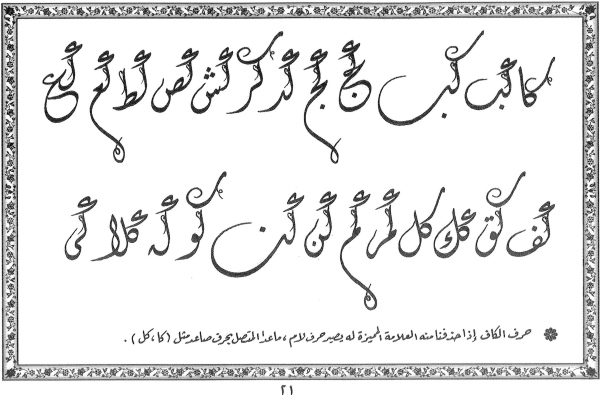 كا كب كب كج كج كد كر كش كص كط كع كع
كف كق كك كل كمر كم كن كن كو كه كلا كى
حرف الكاف إذا حذفنا منه العلامة المميزة له يصير حرف لام ، ماعدا المتصل بحرف صاعد مثل ( كا ، كل ) .
٢١